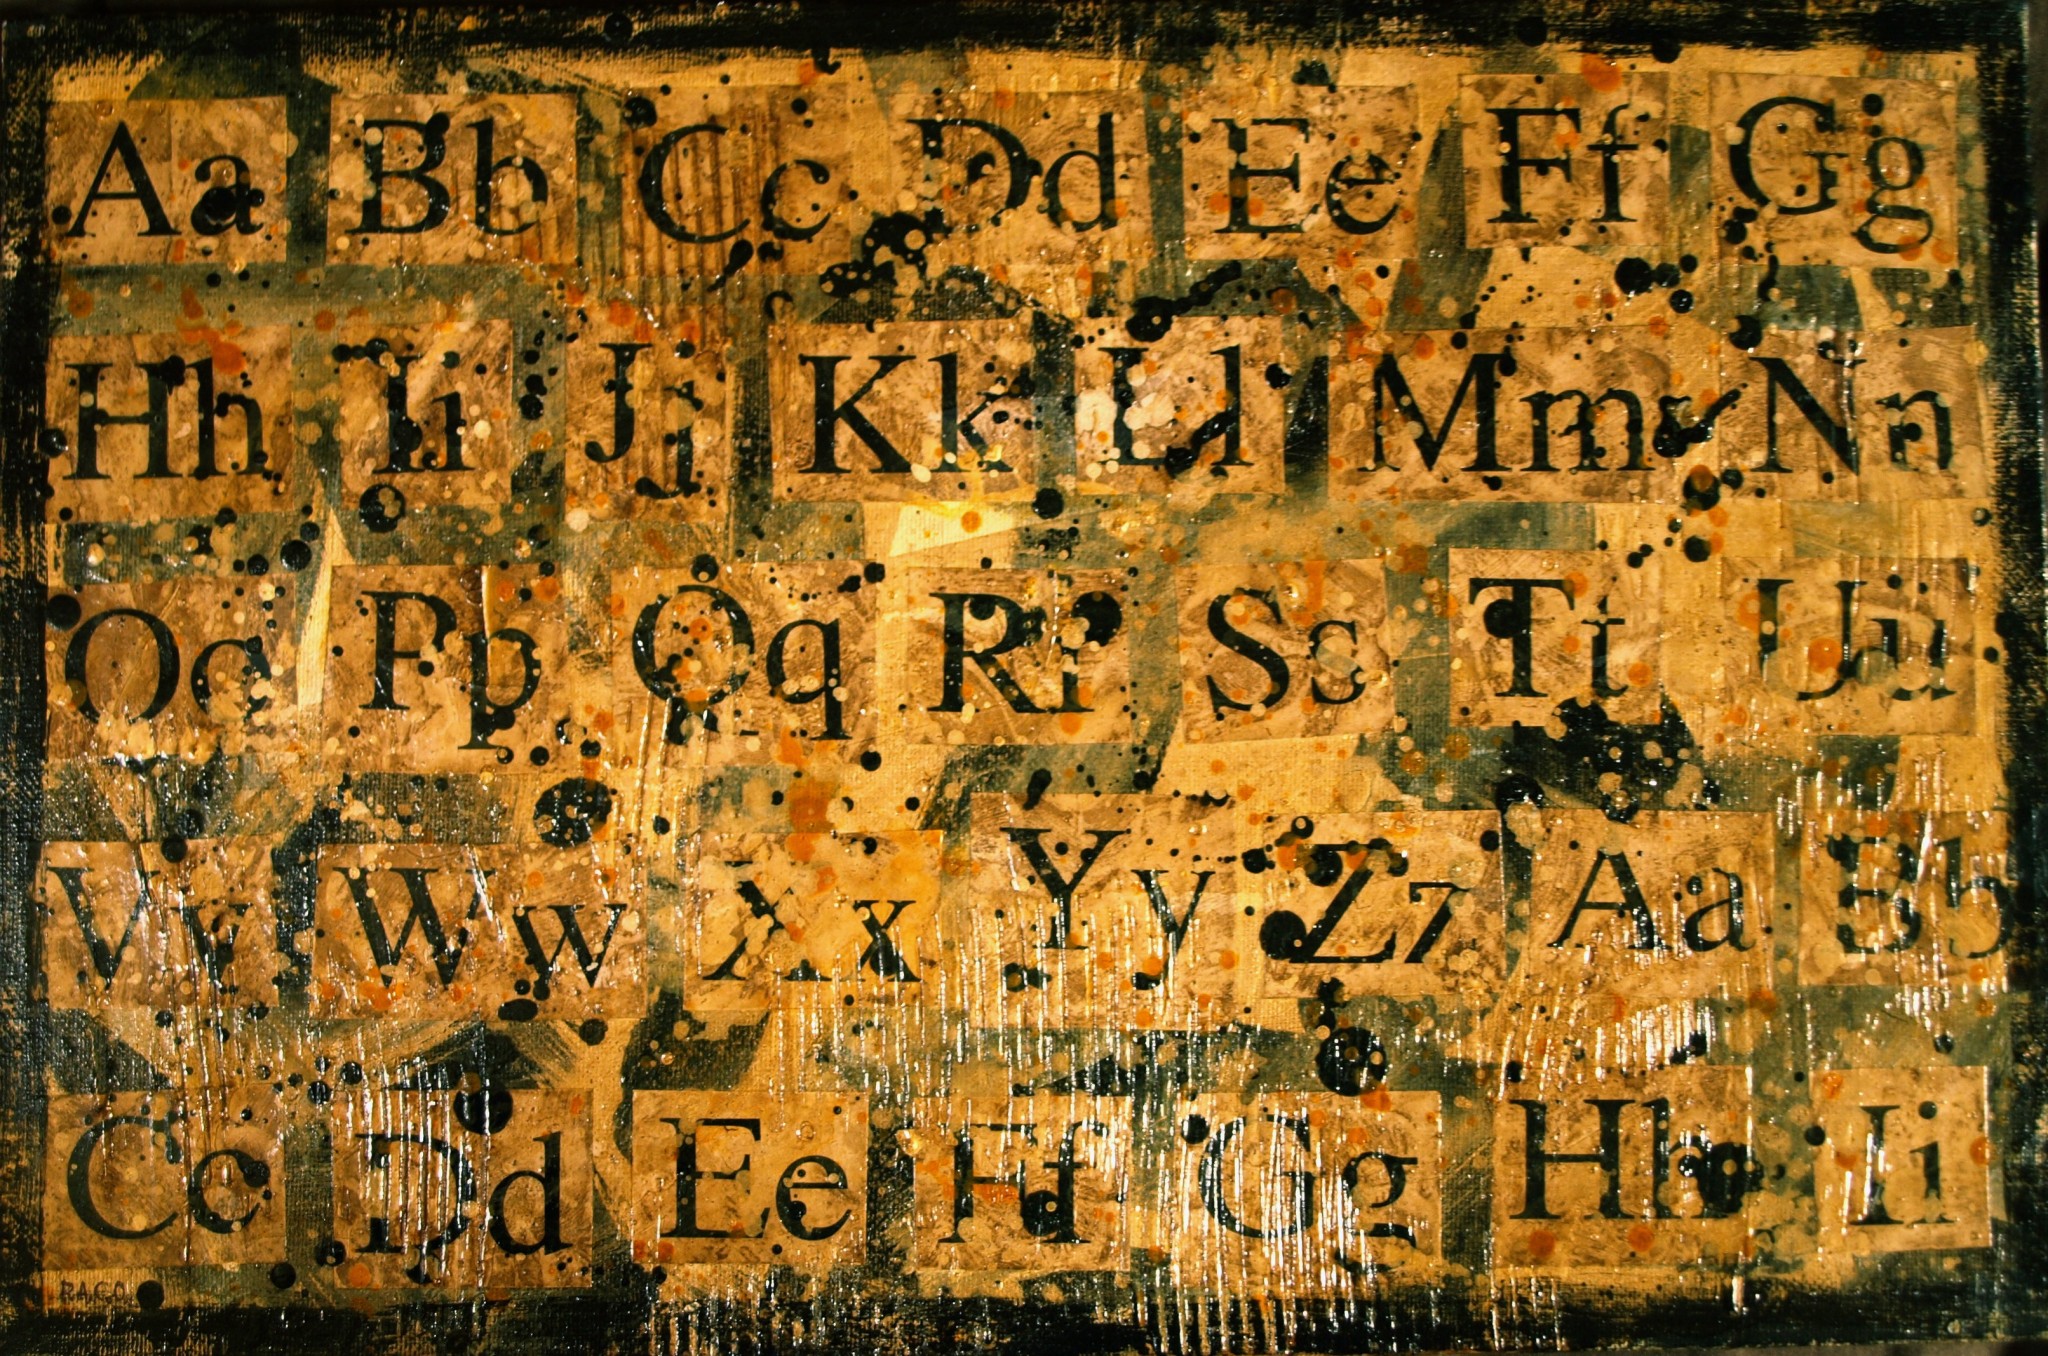 Aa Bb Cc Dd Ee Ff Gg
Hh Ii Jj Kk Ll Mm Nn
Oo Pp Qq Rr Ss Tt Uu
Vv Ww Xx Yy Zz Aa Bb
Cc Dd Ee Ff Gg Hh Ii
RACO